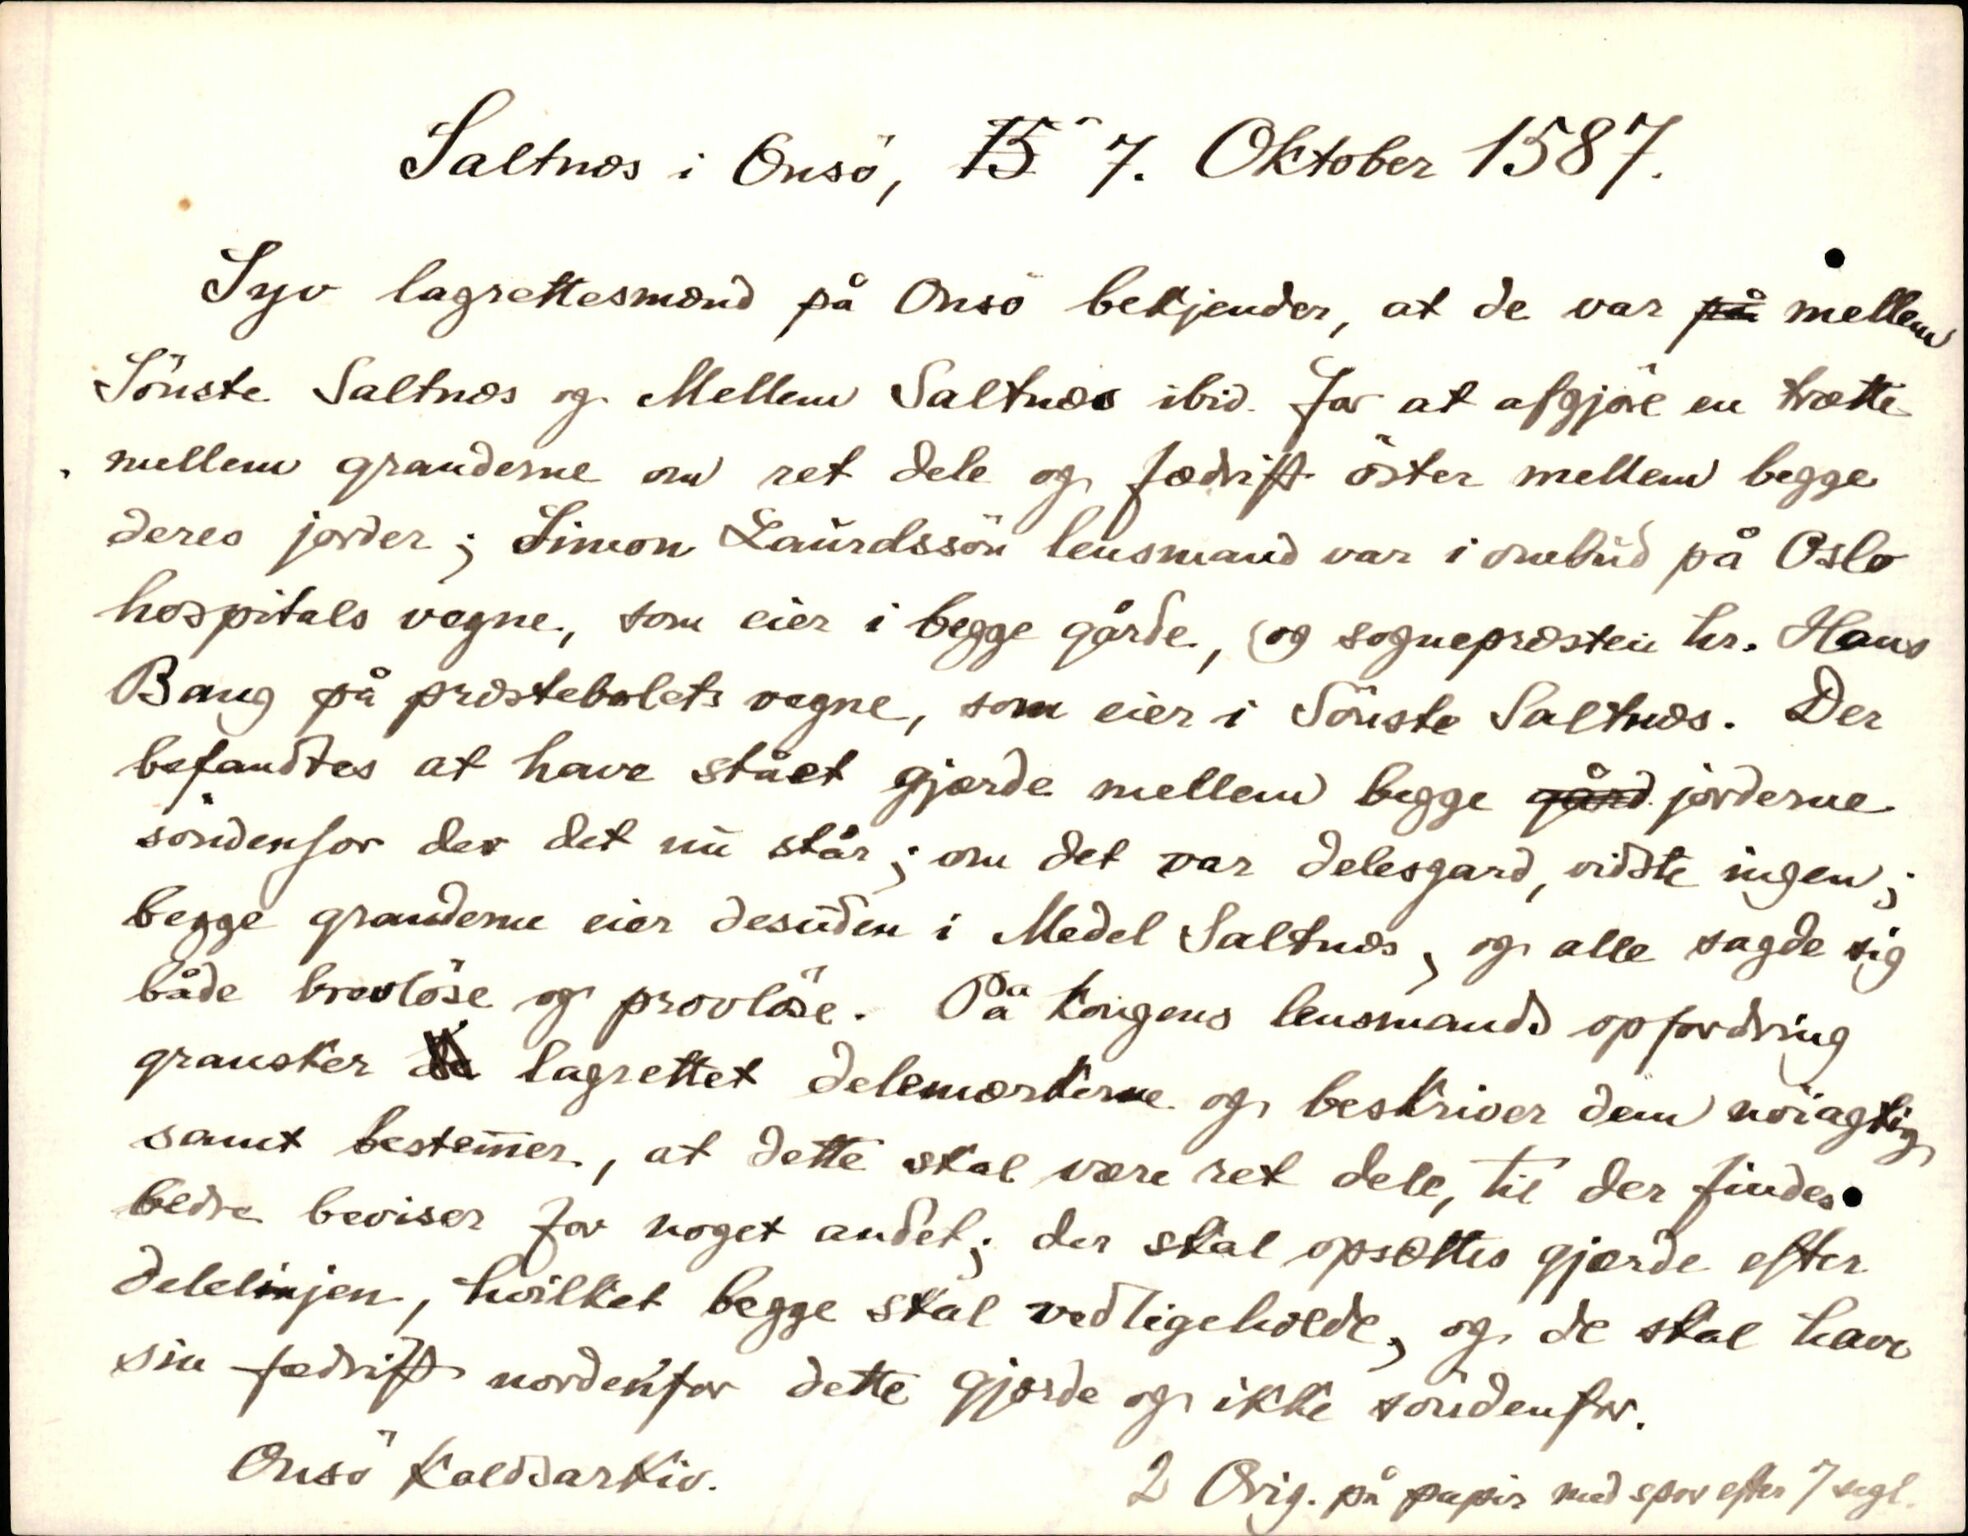 Saltnæs i Onsö, 15 7. Oktober 1587.
Syv lagrettesmænd på Onsö bekjender, at de var på mellem
Sönste Saltnæs og Mellem Saltnæs ibid. for at afgjöre en trætte
mellem granderne om ret dele og fædrift öster mellem begge
deres jorder; Simon Laurdssön lensmand var i ombud på Oslo
hospitals vegne, som eier i begge gårde, og sognepræsten hr. Hans
Bang på præstebolets vegne, som eier i Sönste Saltnæs. Der
befandtes at have stået gjærde mellem begge gård jorderne
söndenfor der det nu står; om det var delesgard, vidste ingen;
begge granderne eier desuden i Medel Saltnæs, og alle sagde sig
både brevlöse og provlöse. På kongens lensmands opfordring
gransker de lagrettet delemærkerne og beskriver dem nöiagtig
samt bestemmer, at dette skal være ret dele, til der findes
bedre beviser for noget andet; der skal opsættes gjærde efter
delelinjen, hvilket begge skal vedligeholde, og de skal have
sin fædrift nordenfor dette gjærde og ikke söndenfor.
Onsö kaldsarkiv.
2 Orig. på papir med spor efter 7 segl.